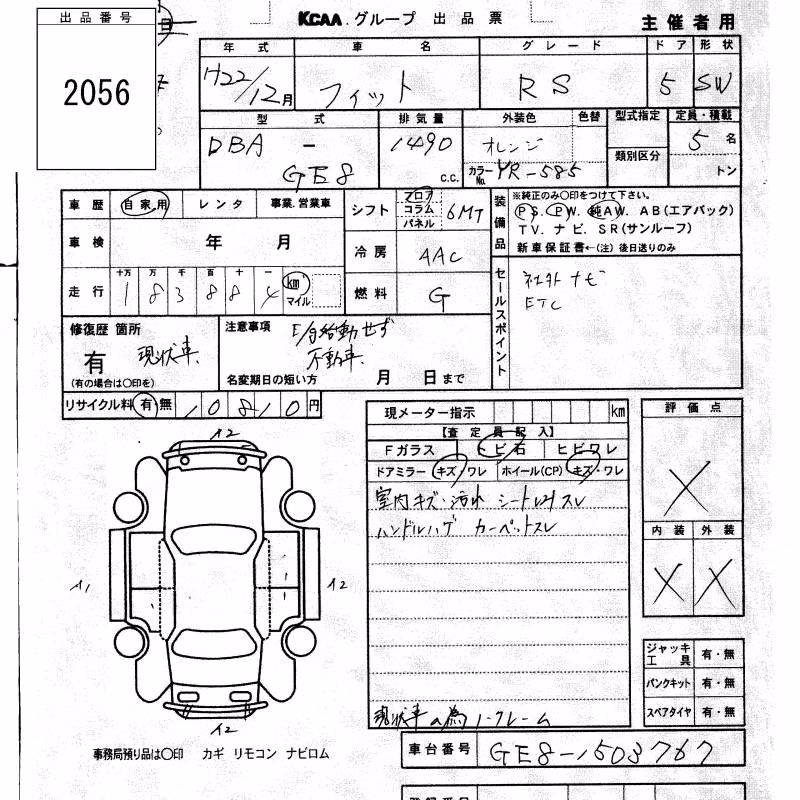 出品番号
2056
KCAA.グループ 出品票
主催者用
年式 車名 グレード ドア 形状
H22/12月 フィット RS 5 SW
型式 排気量 外装色 色替 型式指定 定員・積載
DBA - GE8 1490 c.c. オレンジ 類別区分 5名
カラーNo. YR-585 トン
車歴 自家用 レンタ 事業.営業車
シフト フロア コラム パネル 6MT
装備品 ※純正のみ○印をつけて下さい。
PS. PW. 純AW. AB(エアバック)
TV. ナビ. SR(サンルーフ)
新車保証書←(注)後日送りのみ
車検 年 月
冷房 AAC
走行 十万 万 千 百 十 一
183884 km マイル
燃料 G
セールスポイント 社外ナビ
ETC
修復歴 箇所
有 現状車
(有の場合は○印を)
注意事項 E/G始動せず
不動車
名変期日の短い方 月 日まで
リサイクル料 有・無 10810円
現メーター指示 km
【査定員記入】
Fガラス トビ石 ヒビワレ
ドアミラー キズ/ワレ ホイール(CP) キズ・ワレ
室内キズ・汚れ シートスレ
ハンドルハゲ カーペットスレ
現状車の為ノークレーム
評価点
X
内装 外装
X X
ジャッキ工具 有・無
パンクキット 有・無
スペアタイヤ 有・無
A2
A1
A2
A2
事務局預り品は○印 カギ リモコン ナビロム
車台番号 GE8-1503767
登録番号